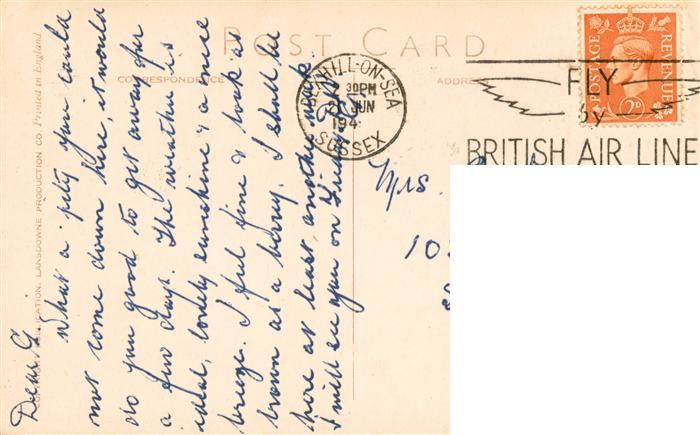 POST CARD
CORRESPONDENCE
ADDRESS
Printed in England
LANSDOWNE PRODUCTION CO.
BEXHILL-ON-SEA
30PM
JUN
194
SUSSEX
FLY
by
BRITISH AIR LINE
POSTAGE
REVENUE
2D
Dear G.
What a pity you could
not come down here, it would
do you good to get away for
a few days. The weather is
ideal, lovely sunshine & a nice
breeze. I feel fine & look as
brown as a berry. I shall be
here at least another week
I will see you on
Mrs.
10